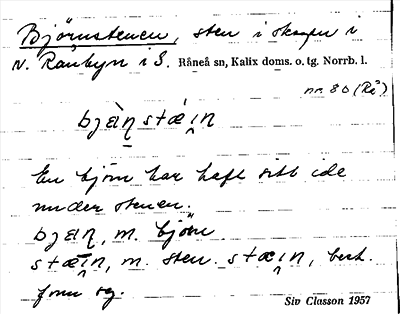 Björnstenen, sten i skogen i
N. Rånbyn i S. Råneå sn, Kalix doms. o. tg. Norrb. l.
nr. 80 (Rå)
bjὲɳstæ̀i̯n
En björn har haft sitt ide
under stenen.
bjɛɳ, m. björn
stæi̯n, m. sten. stæi̯n, best.
form sg.
Siv Classon 1957